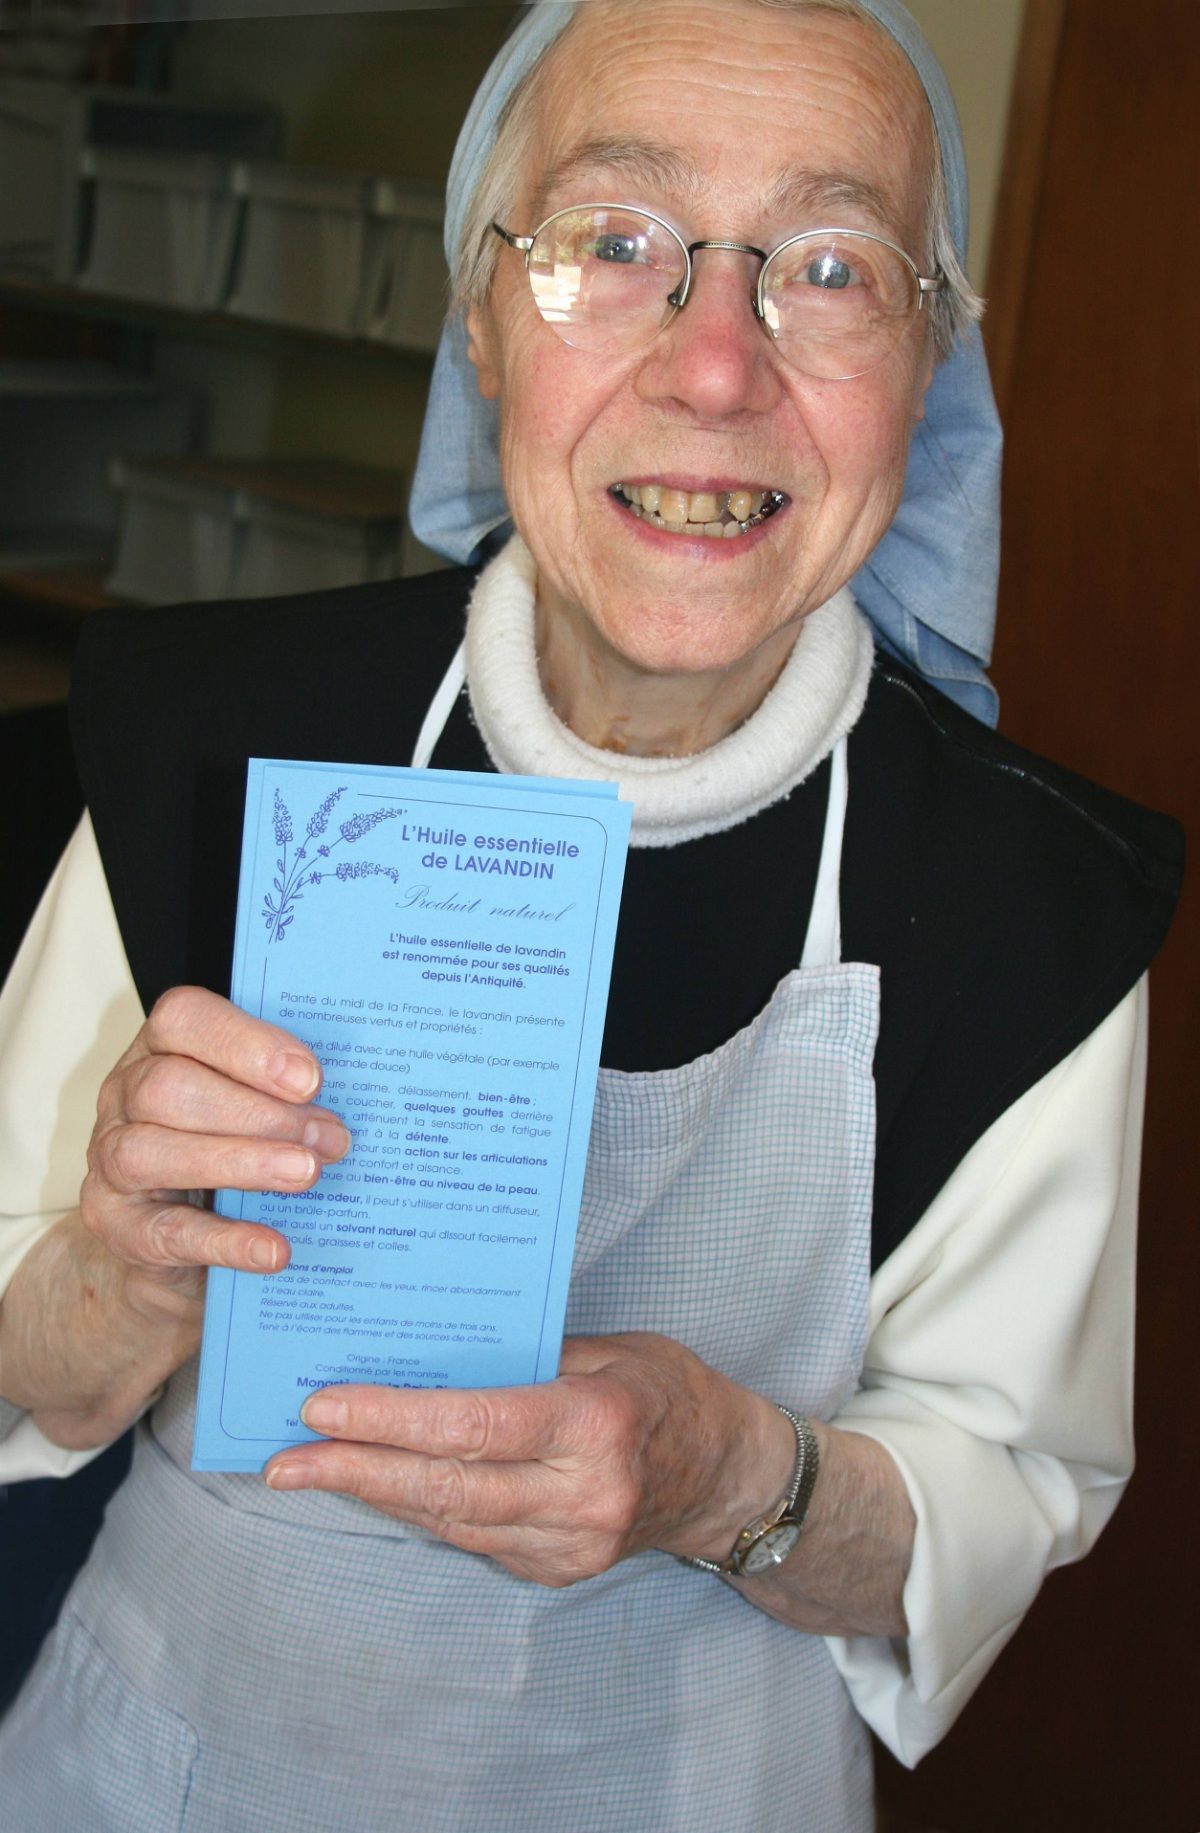 L'Huile essentielle
de LAVANDIN
Produit naturel
L'huile essentielle de lavandin
est renommée pour ses qualités
depuis l'Antiquité.
Plante du midi de la France, le lavandin présente
de nombreuses vertus et propriétés :
dilué avec une huile végétale (par exemple
amande douce)
calme, délassement, bien-être ;
le coucher, quelques gouttes derrière
atténuent la sensation de fatigue
à la détente.
pour son action sur les articulations
confort et aisance.
au bien-être au niveau de la peau.
D'agréable odeur, il peut s'utiliser dans un diffuseur,
ou un brûle-parfum.
C'est aussi un solvant naturel qui dissout facilement
graisses et colles.
d'emploi
En cas de contact avec les yeux, rincer abondamment
à l'eau claire.
Réservé aux adultes.
Ne pas utiliser pour les enfants de moins de trois ans.
Tenir à l'écart des flammes et des sources de chaleur.
Origine : France
Conditionné par les moniales
Tél